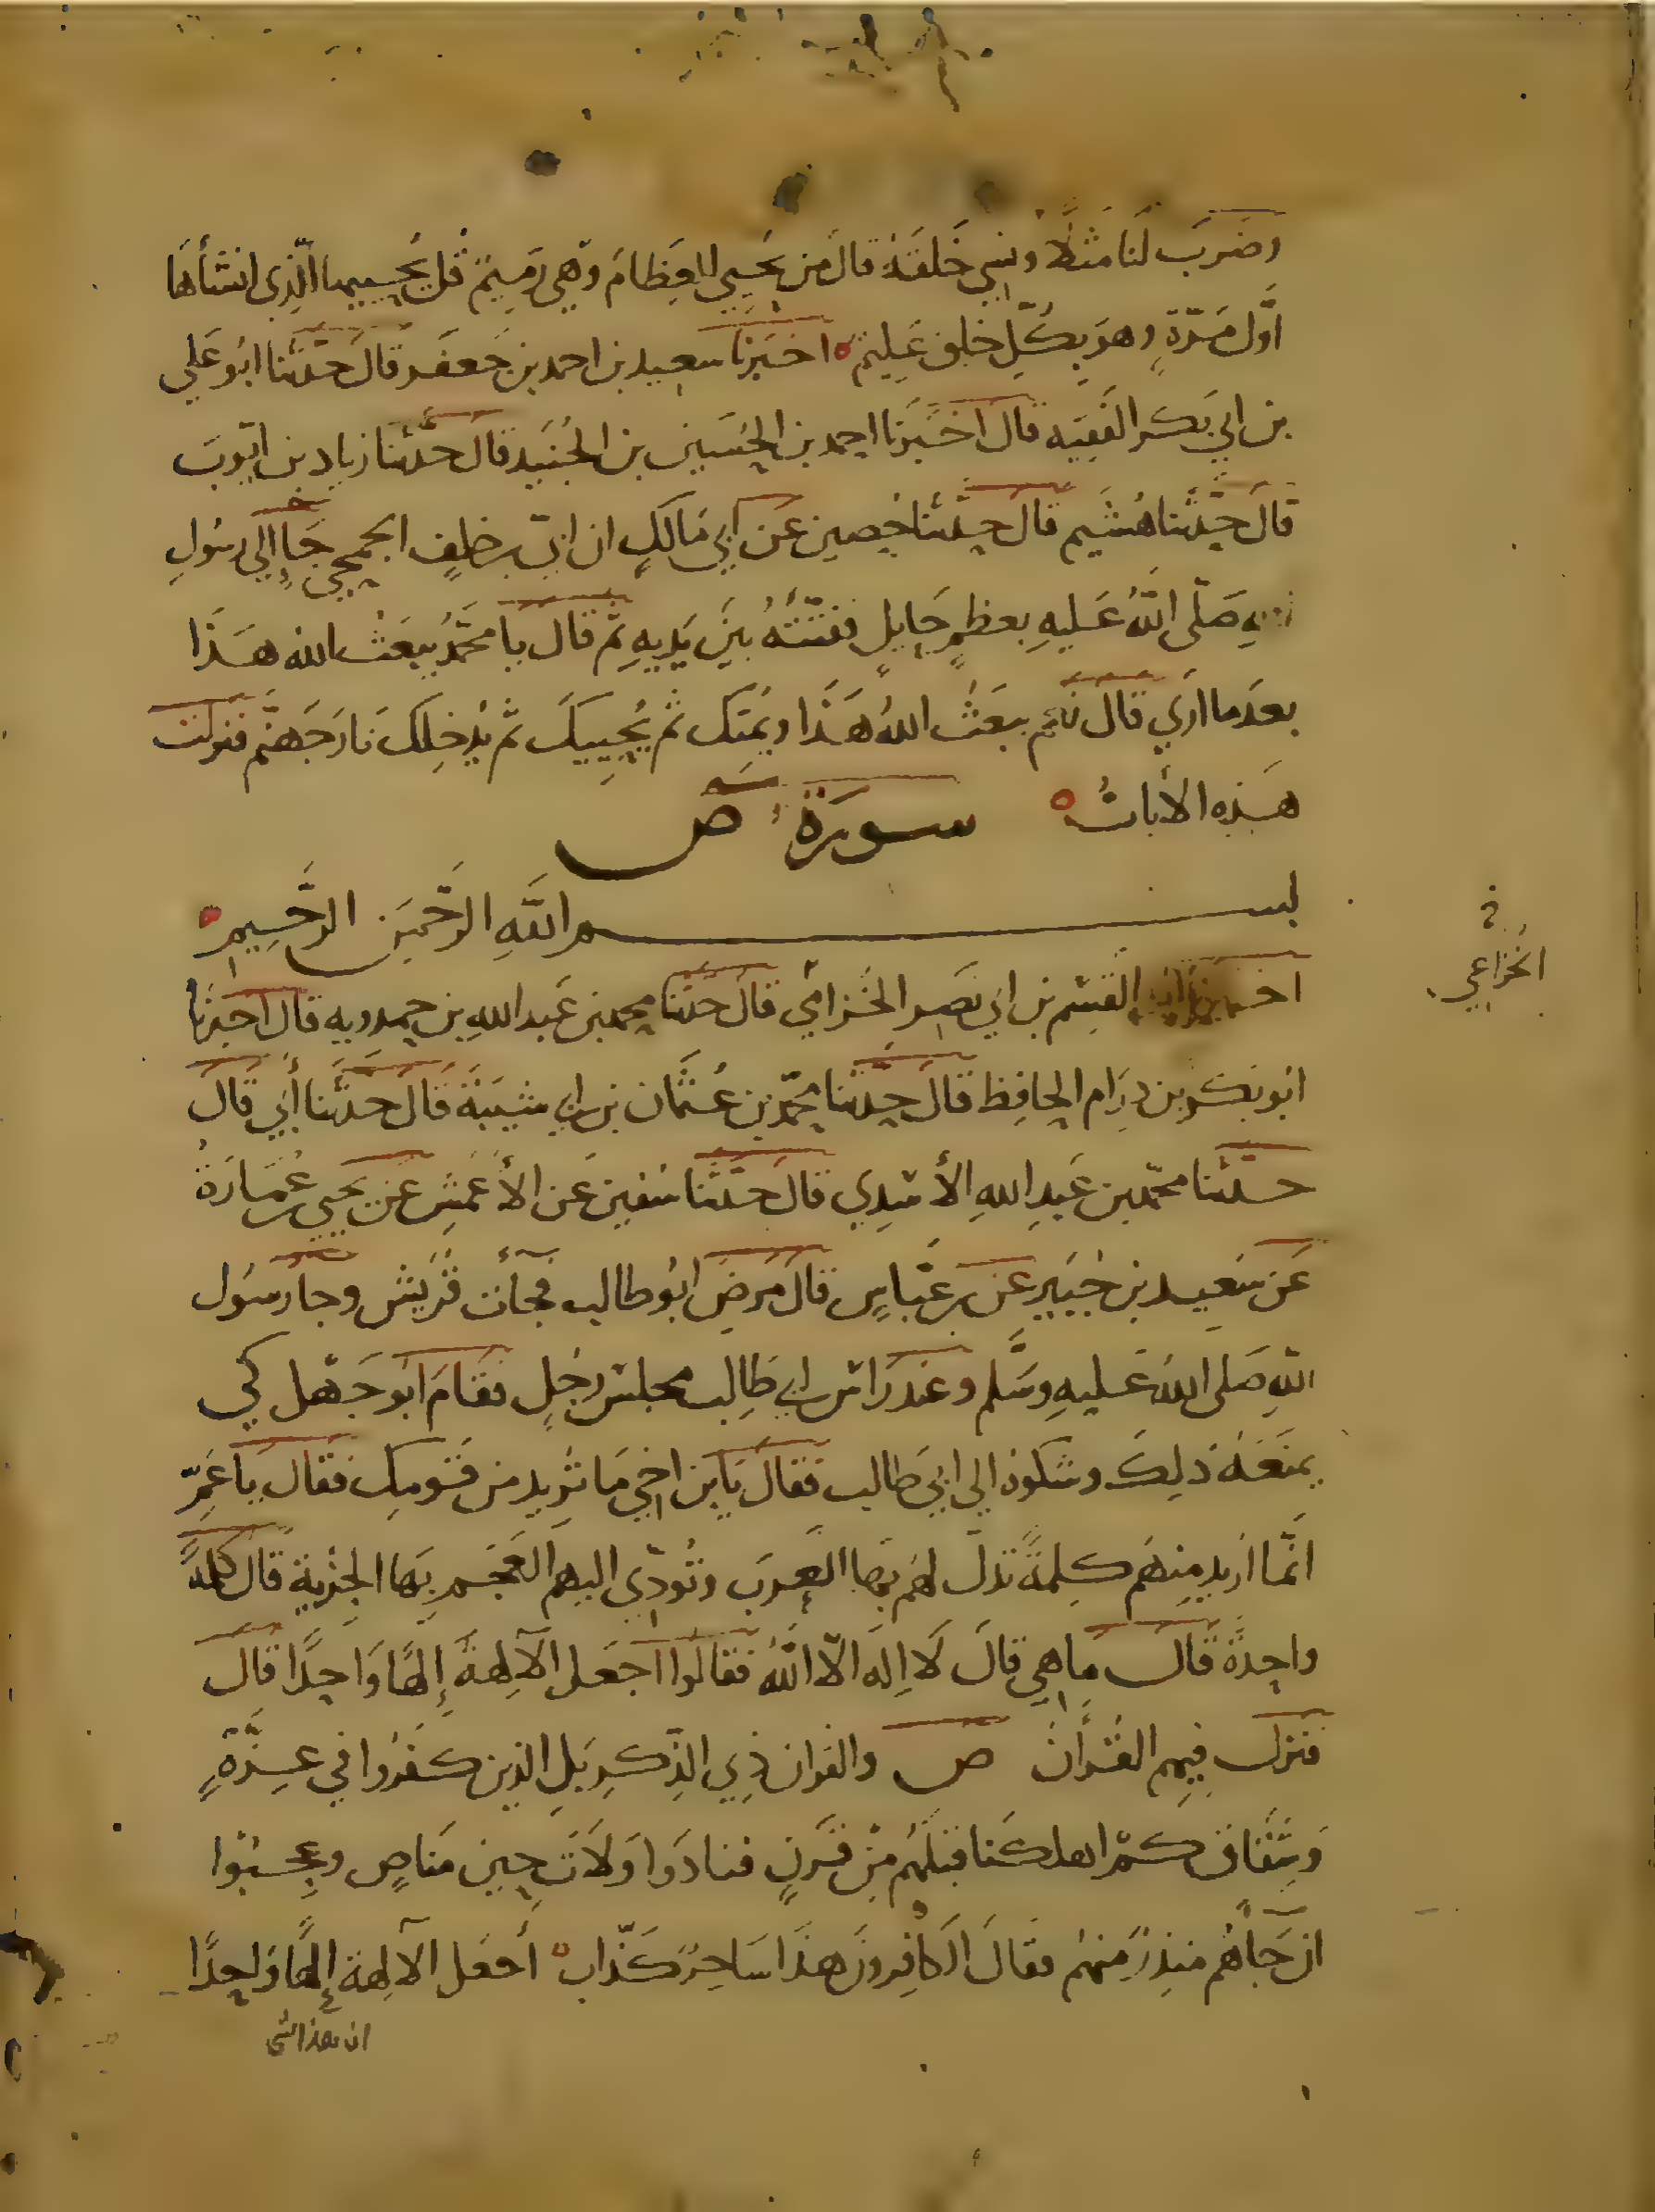 وضَربَ لنَا مَثلًا ونسِي خَلقَهُ قالَ مَن يُحيي العِظامَ وهِي رَميمٌ قُل يُحييها الّذِي انشَأهَا
أوَّل مَرّةٍ وهوَ بكلِّ خلقٍ عَلِيمٌ ه اخبَرنا سعيد بن احمد بن جَعفَر قالَ حدّثنا ابُو عَلي
بن ابي بَكر الفَقِيه قالَ اخبَرنَا احمد بن الحُسَين بن الجُنَيد قالَ حدّثنا زياد بن ايّوبَ
قالَ حَدّثنا هُشَيم قالَ حدثنا حُصين عَن ابي مَالكٍ ان ابيّ بن خلفٍ الجمحي جَا إلى رسُولِ
اللهِ صَلّى اللّهُ عَليهِ بعظمٍ حَايلٍ ففَتّتهُ بينَ يَديهِ ثم قالَ يا محمّدُ يبعَثُ الله هَذَا
بعدَ ما ارَي قال نَعَم يبعَثُ اللهُ هَذَا ويُميتك ثُم يُحييكَ ثمّ يُدخِلكَ نارَ جَهنّم فنَزلت
هَذِه الأياتُ ه سورَة ص
بسم اللَّهِ الرّحمَنِ الرَّحِيمِ ه
اخبرنا القسم بن ابي نصر الخُزامي قالَ حدثنا محمد بن عَبد اللهِ بن حمدويه قال اخبَرنَا
ابُو بَكر بن دَارِم الحافِظ قالَ حدّثنا محمّد بن عُثمَان بن ابي شَيبَة قَالَ حدّثنَا أبي قَالَ
حدّثنا محمّد بن عَبدِ اللهِ الأسَدِي قالَ حَدّثنا سُفين عَن الأعمَشِ عَن يحيي بن عُمَارَةُ
عَن سَعِيد بن جُبَيرٍ عَن بن عَبّاسٍ قالَ مَرِضَ ابُو طالب فجأت قُرَيش وجا رسُول
اللهِ صَلى اللهُ عَليهِ وسَلّم وعند رَاس ابي طَالِب مجلس رجُلٍ فقَامَ ابو جَهل كي
يمنَعَهُ ذلِكَ وشكوه الي ابي طالب فقال يَابن اخي مَا تريد من قَومِك فقال يا عَمّ
انّما اريد مِنهُم كلِمةً تذلّ لهم بهَا العَرب وتُودّي اليهم العَجَم بِهَا الجِزيَة قال كلمةً
واحِدةً قَالَ ماهي قالَ لَا اِلَه الّا اللّهُ فقالوا أجعَل الآلِهةَ إلهًا وَاحِدًا قال
فنزلَ فِيهِم القُرأنُ ص والقران ذِي الذِّكرِ بَلِ الذين كفَرُوا فِي عِزّةٍ
وَشِقَاقٍ كم اهلكنَا قبلَهُم مِن قَرنٍ فنَادَوا وَلَاتَ حِين مَناصٍ وعَجِبُوا
ان جَاهُم منذِرٌ مِنهُم فقالَ الكافِرونَ هذَا سَاحِرٌ كذّاب ه أجعَل الآلهَة إلهًا وَاحِدًا
ان هذا لشي
الخُزاعي